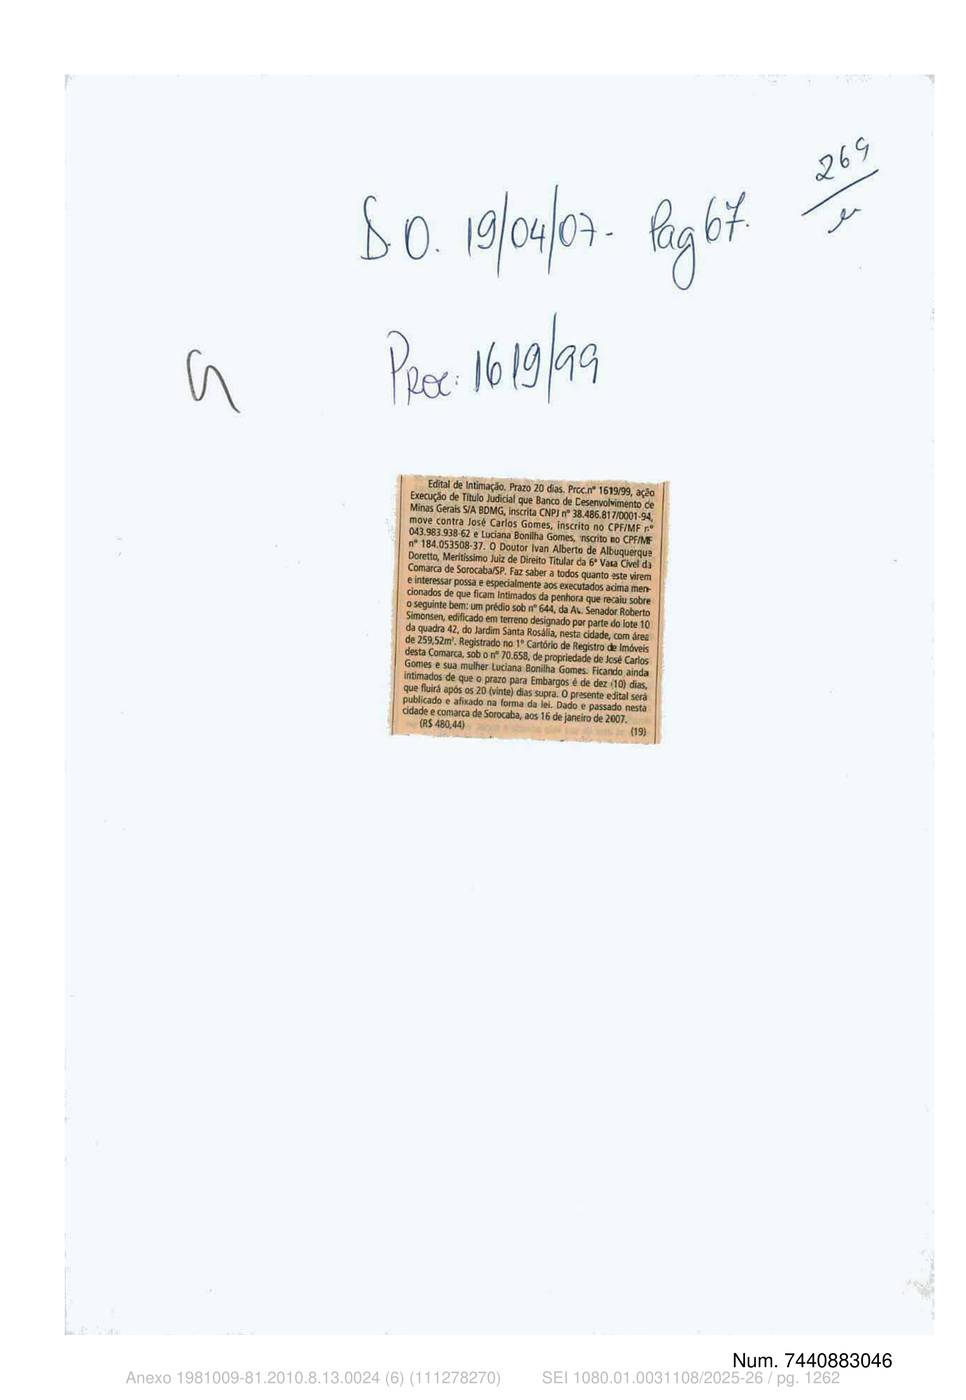 269
D.O. 19/04/07- Pag 67.
Proc: 1619/99
Edital de Intimação. Prazo 20 dias. Proc.nº 1619/99, ação
Execução de Título Judicial que Banco de Desenvolvimento de
Minas Gerais S/A BDMG, inscrita CNPJ nº 38.486.817/0001-94,
move contra José Carlos Gomes, inscrito no CPF/MF nº
043.983.938-62 e Luciana Bonilha Gomes, inscrito no CPF/MF
nº 184.053508-37. O Doutor Ivan Alberto de Albuquerque
Doretto, Meritíssimo Juiz de Direito Titular da 6ª Vara Cível da
Comarca de Sorocaba/SP. Faz saber a todos quanto este virem
e interessar possa e especialmente aos executados acima men-
cionados de que ficam Intimados da penhora que recaiu sobre
o seguinte bem: um prédio sob nº 644, da Av. Senador Roberto
Simonsen, edificado em terreno designado por parte do lote 10
da quadra 42, do Jardim Santa Rosália, nesta cidade, com área
de 259,52m². Registrado no 1º Cartório de Registro de Imóveis
desta Comarca, sob o nº 70.658, de propriedade de José Carlos
Gomes e sua mulher Luciana Bonilha Gomes. Ficando ainda
intimados de que o prazo para Embargos é de dez (10) dias,
que fluirá após os 20 (vinte) dias supra. O presente edital será
publicado e afixado na forma da lei. Dado e passado nesta
cidade e comarca de Sorocaba, aos 16 de janeiro de 2007.
(R$ 480,44) (19)
Num. 7440883046
Anexo 1981009-81.2010.8.13.0024 (6) (111278270) SEI 1080.01.0031108/2025-26 / pg. 1262